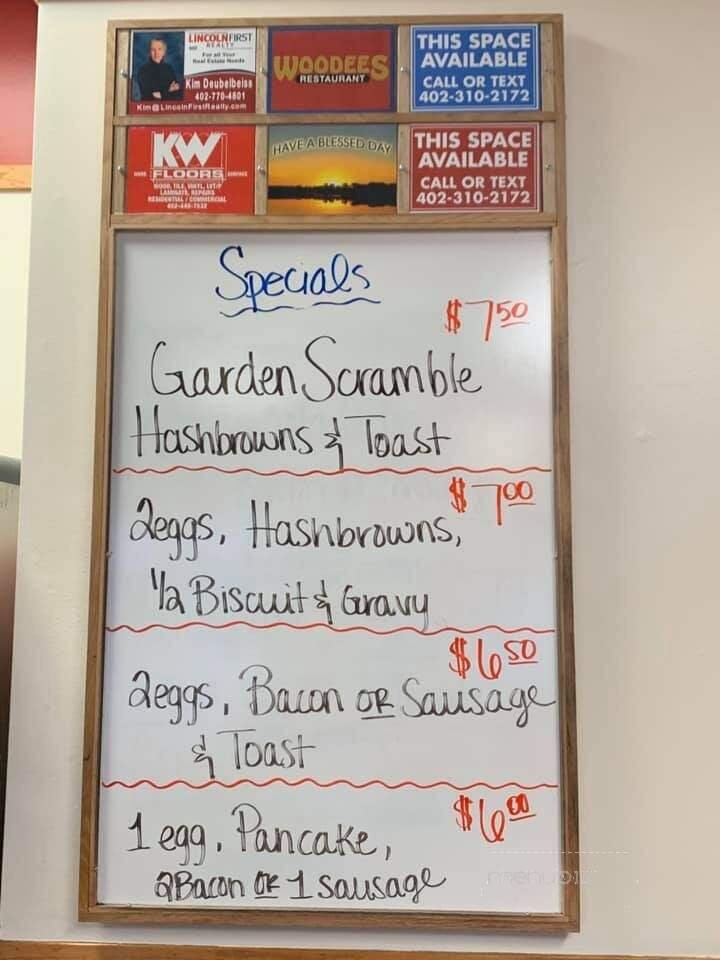 LINCOLN FIRST
REALTY
For all Your
Real Estate Needs
Kim Deubelbeiss
402-770-4601
Kim@LincolnFirstRealty.com
WOODEES
RESTAURANT
THIS SPACE
AVAILABLE
CALL OR TEXT
402-310-2172
KW
FLOORS
WOOD, TILE, VINYL, LVT/P
LAMINATE, REPAIRS
RESIDENTIAL / COMMERCIAL
HAVE A BLESSED DAY
THIS SPACE
AVAILABLE
CALL OR TEXT
402-310-2172
Specials
$7 50
Garden Scramble
Hashbrowns & Toast
$7 00
2eggs, Hashbrowns,
1/2 Biscuit & Gravy
$6 50
2eggs, Bacon OR Sausage
& Toast
$6 00
1 egg, Pancake,
2Bacon OR 1 sausage